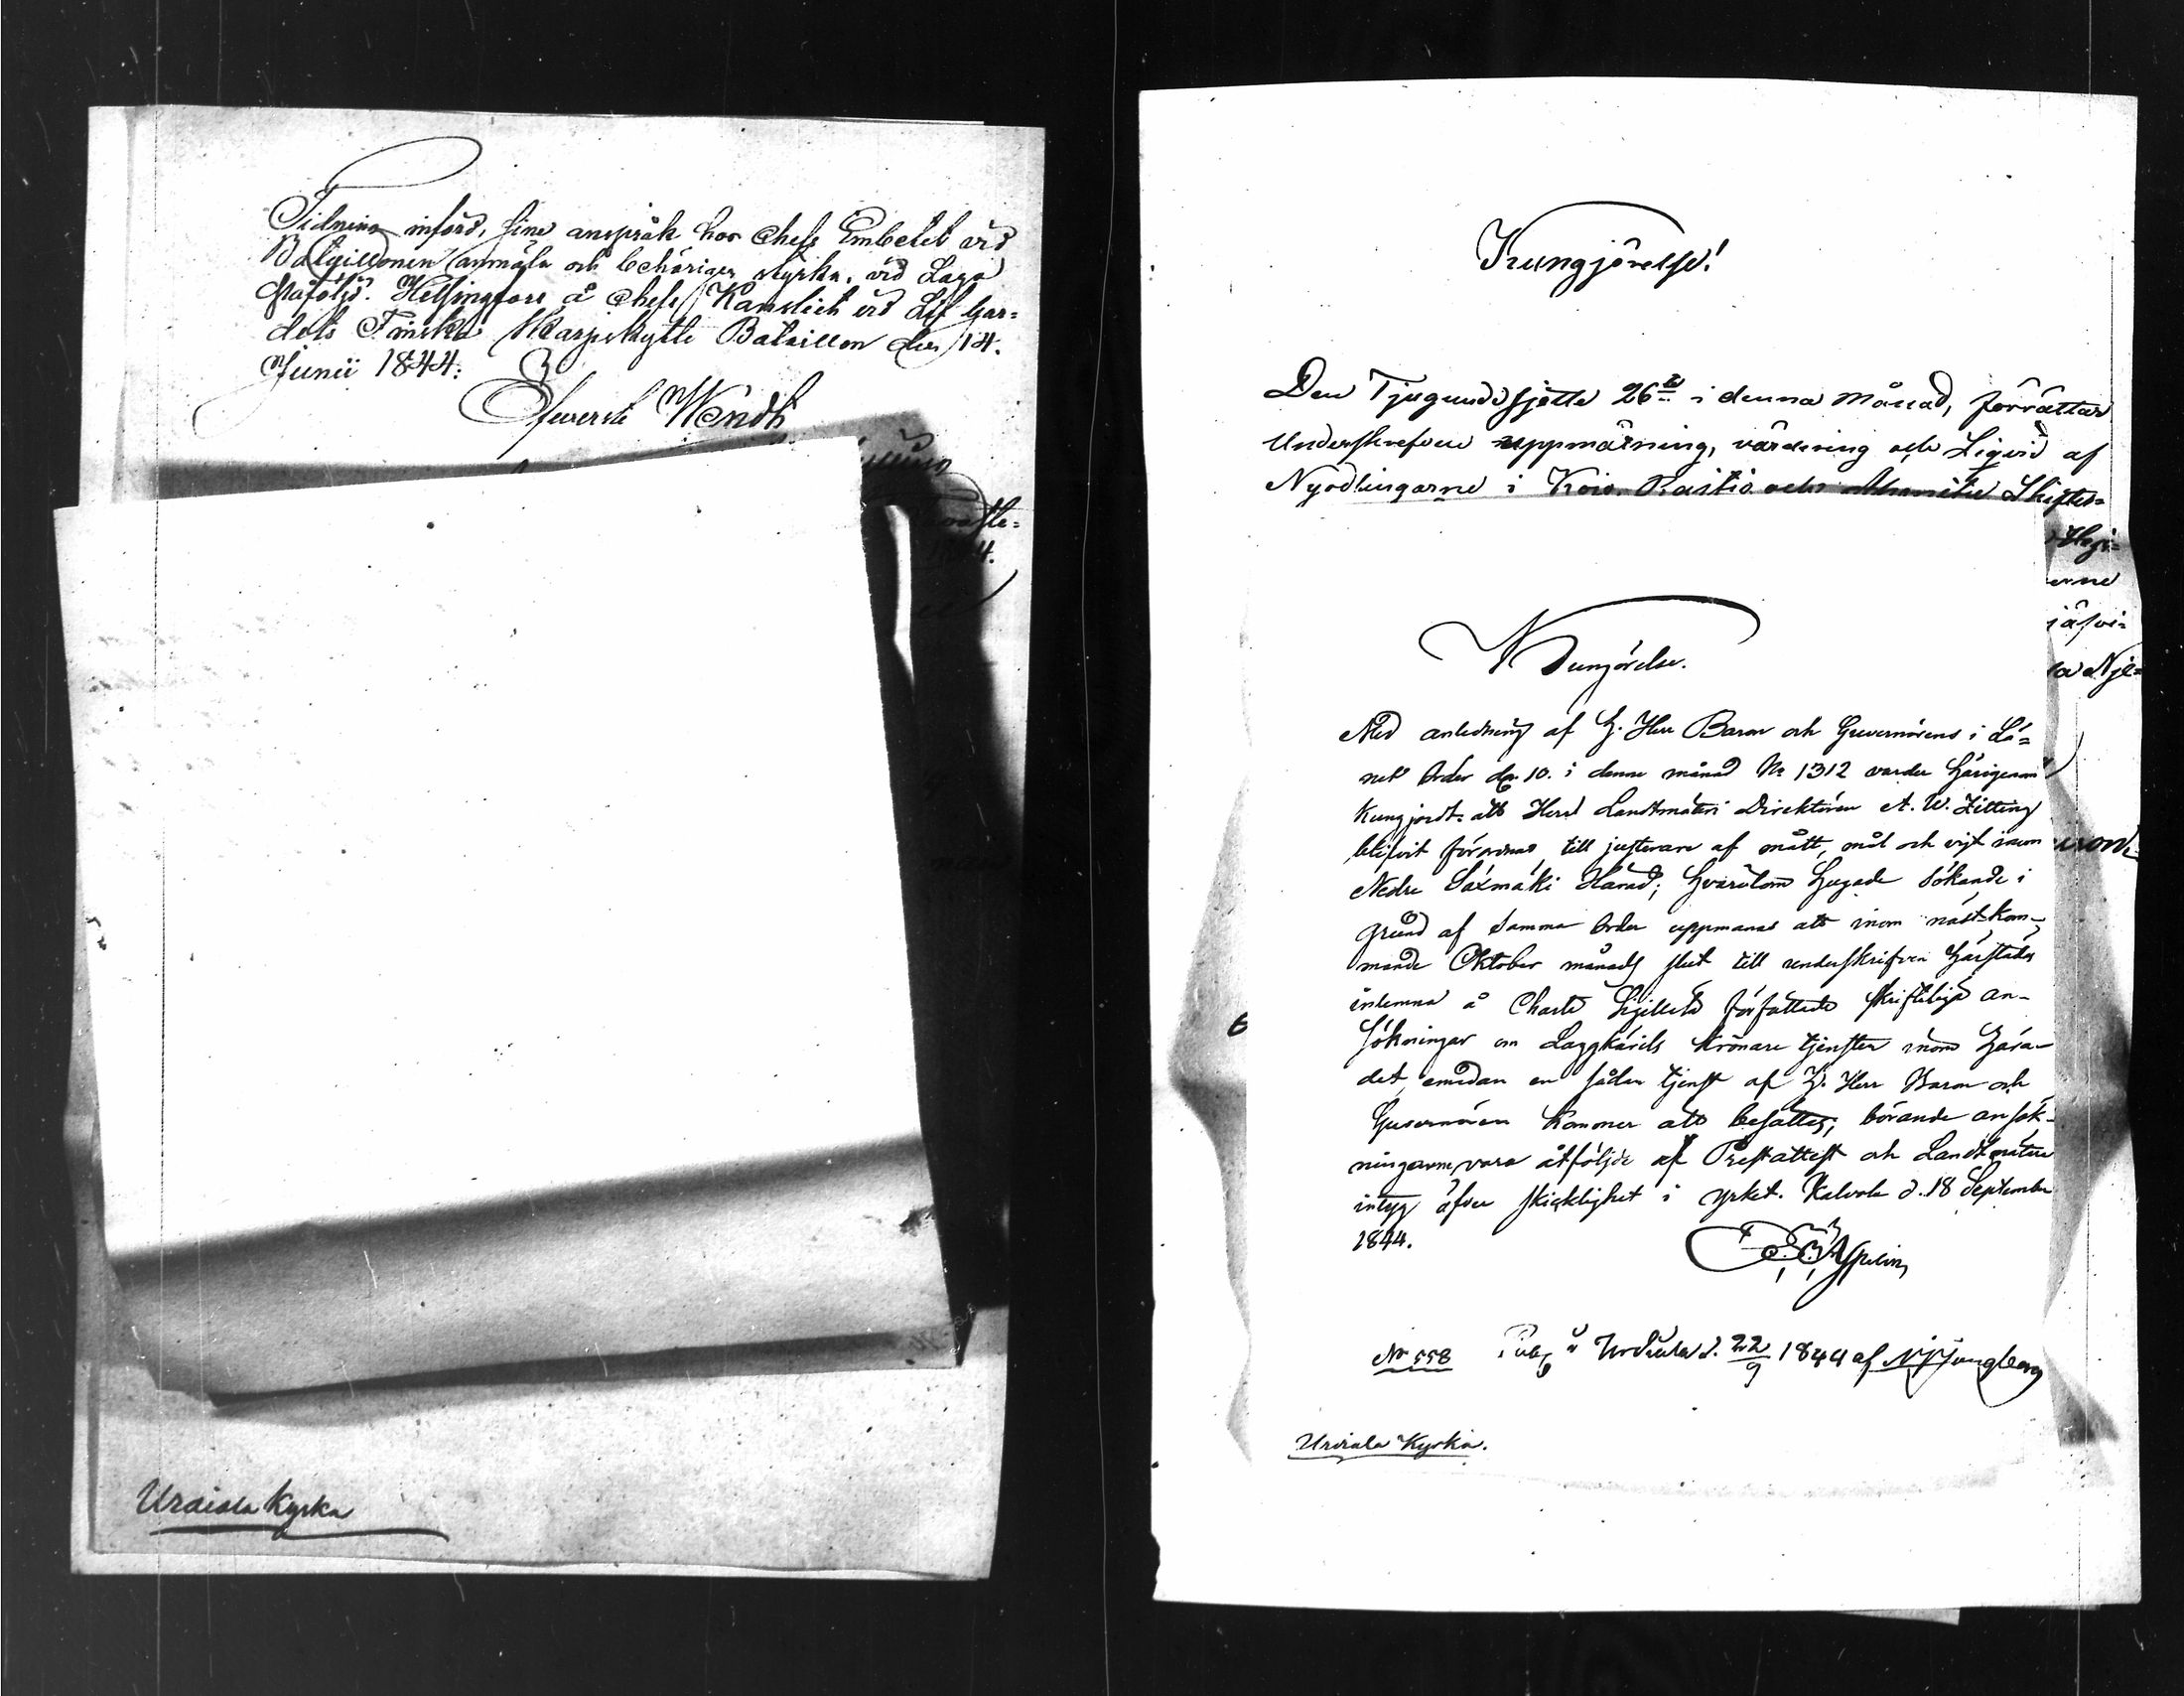 Tidning införd, sine anspråk hos Chefs Embetet vid
Bataillonen anmäla och behörigen styrka, vid Laga
påföljd. Helsingfors å Chefs Kansliet vid Lif Gar-
dets Finska Skarpskytte Bataillon den 14.
Junii 1844.
Öfverste Wendt
Urdiala Kyrka
Kungjörelse!
Den Tjugundesjette 26te i denna Månad, förrättar
Underskrefven uppmätning, värdering och Liqvid af
Nyodlingarne i Koio, Rastio och Skiftes-
erne
jäfvi-
Kungörelse.
Med anledning af H. Herr Baron och Guvernörens i Lä-
net Order den 10. i denne månad No 1312 varder härigenom
Kungjordt att Herr Landtmäteri Direktören A. W. Zitting
blifvit förordnad till justerare af mått, mål och vigt inom
Nedre Säxmäki Härad; hvarutom hugade sökande i
grund af samma Order uppmanas att inom nästkom-
mande Oktober månads slut till underskrifven Härstädes
inlemna å Charta Sigillata författade skriftliga an-
sökningar om Laggkärils Krönare tjensten inom Hära-
det, emedan en sådan tjenst af H. Herr Baron och
Guvernören kommer att besättas; börande ansök-
ningarne vara åtföljde af Prestattest och Landtmätare
intyg öfver skicklighet i yrket. Kalvola d. 18 September
1844.
Aspelin
No 558 Publ. i Urdiala d. 22/9 1844 af N. Ljungberg
Urdiala Kyrka.